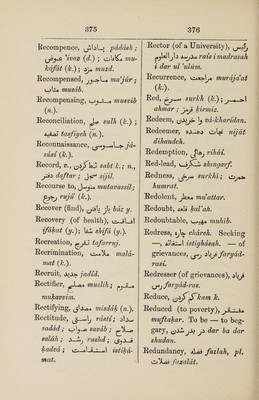 375
Recompence, پاداش pádásh;
عوض 'ivaz (d.); مكافات mu-
káfát (k.); مزد muzd.
Recompensed, ماجور ma'júr;
مثاب musáb.
Recompensing, مثيب musíb
(n.).
Reconciliation, صلح sulh (k.);
تصفيه tasfiyeh (n.).
Reconnaissance, جاسوسى já-
súsí (k.).
Record, v., ضبط كردن sabt k.; n.,
دفتر daftar; سجل sijil.
Recourse to, متوسل mutavassil;
رجوع rujú' (k.).
Recover (find), باز يافتن báz y.
Recovery (of health), افاقت
ifáqat (y.); شفا shifá (y.).
Recreation, تفرج tafarruj.
Recrimination, ملامت malá-
mat (k.).
Recruit, جديد jadíd.
Rectifier, مصلح muslih; مقوم
mukavim.
Rectifying, مصداق misdák (n.).
Rectitude, راستى rástí; سداد
sadád; صواب saváb; صلاح
saláh; رشد rushd;
kadea; استقامت istiká-
mat.
376
Rector (of a University), رئيس
مدرسه دار العلوم raís i madrasah
i dar ul 'ulúm.
Recurrence, مراجعت murája'at
(k.).
Red, سرخ surkh (k.); احمر
ahmar; قرمز kirmiz.
Redeem, وا خريدن vá-kharídan.
Redeemer, نجات دهنده niját
dihandeh.
Redemption, رهائى rihái.
Red-lead, شنگرف shngarf.
Redness, سرخى surkhi; حمرت
humrat.
Redolent, معطر mu'attar.
Redoubt, قلعه kal'ah.
Redoubtable, مهيب muhib.
Redress, چاره cháreh. Seeking
—, استغاثه istighásah. — of
grievances, فرياد رسى faryád-
rasí.
Redresser (of grievances), فرياد
رس faryád-ras.
Reduce, كم كردن kam k.
Reduced (to poverty), مفتقر
muftakar. To be — to beg-
gary, در بدر شدن dar ba dar
shudan.
Redundancy, فضله fazlah, pl.
فضلات fazalát.